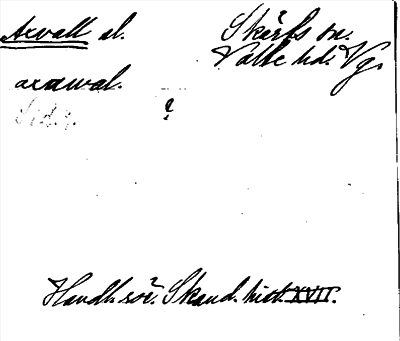 Axvall al.
Skärfs sn.
Valle hd. Vg.
axawal.
?
Handl. rör. Skand. hist. XVII.